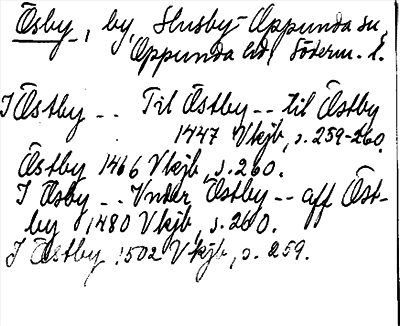 Ösby, by, Husby-Oppunda sn,
Oppunda hd, Söderm. l.
I Östby -- Til Östby -- til Östby
1447 Vkjb, s. 259-260.
Östby 1466 Vkjb, s. 260.
I Ösby -- Vnder Östby -- aff Öst-
by 1480 Vkjb, s. 260.
I Östby 1502 Vkjb, s. 259.